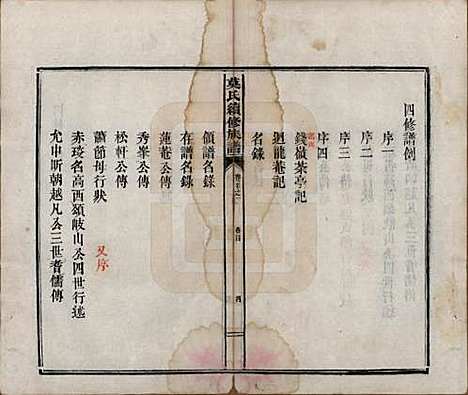 四修譜例
序一
序二
序三
序四
錢嶺茶亭記
迴龍菴記
名錄
葉氏續修族譜
卷首
四
領譜名錄
存譜名錄
蓮菴公傳
秀峯公傳
松軒公傳
蕭節母行狀
又序
赤瑛名高西頟岐山公四世行述
允中昕朝越凡公三世耆儒傳